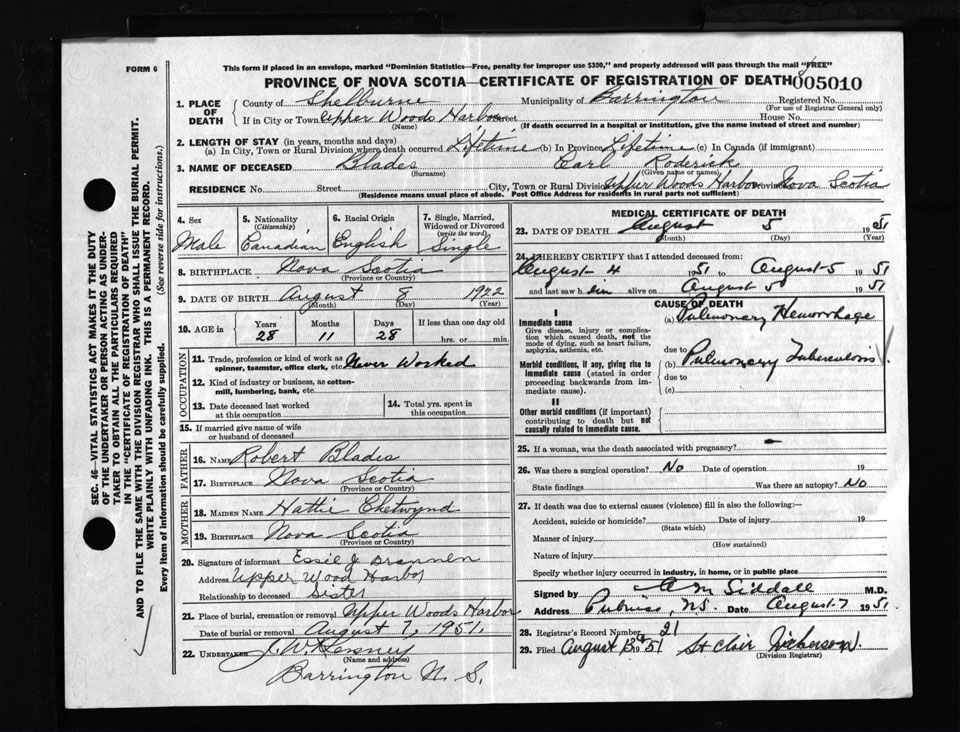 This form if placed in an envelope, marked "Dominion Statistics—Free, penalty for improper use $300," and properly addressed will pass through the mail "FREE"
FORM 6
PROVINCE OF NOVA SCOTIA—CERTIFICATE OF REGISTRATION OF DEATH 005010
1. PLACE OF DEATH County of Shelburne Municipality of Barrington Registered No.
(For use of Registrar General only)
If in City or Town Upper Woods Harbor Street House No.
(Name) (If death occurred in a hospital or institution, give the name instead of street and number)
2. LENGTH OF STAY (in years, months and days)
(a) In City, Town or Rural Division where death occurred Lifetime (b) In Province Lifetime (c) In Canada (if immigrant)
3. NAME OF DECEASED Blades Earl Roderick
(Surname) (Given name or names)
RESIDENCE No. Street City, Town or Rural Division Upper Woods Harbor Province Nova Scotia
(Residence means usual place of abode. Post Office Address for residents in rural parts not sufficient)
4. Sex 5. Nationality 6. Racial Origin 7. Single, Married, Widowed or Divorced
(Citizenship) (write the word)
Male Canadian English Single
8. BIRTHPLACE Nova Scotia
(Province or Country)
9. DATE OF BIRTH August 8 1922
(Month) (Day) (Year)
10. AGE in Years Months Days If less than one day old
28 11 28 hrs. or min.
OCCUPATION
11. Trade, profession or kind of work as spinner, teamster, office clerk, etc. Never Worked
12. Kind of industry or business, as cotton-mill, lumbering, bank, etc.
13. Date deceased last worked at this occupation
14. Total yrs. spent in this occupation
15. If married give name of wife or husband of deceased
FATHER
16. Name Robert Blades
17. Birthplace Nova Scotia
(Province or Country)
MOTHER
18. Maiden Name Hattie Chetwynd
19. Birthplace Nova Scotia
(Province or Country)
20. Signature of informant Essie J Brannen
Address Upper Wood Harbor
Relationship to deceased Sister
21. Place of burial, cremation or removal Upper Woods Harbor
Date of burial or removal August 7, 1951.
22. UNDERTAKER J. W. Kenney
(Name and address)
Barrington N. S.
MEDICAL CERTIFICATE OF DEATH
23. DATE OF DEATH August 5 1951
(Month) (Day) (Year)
24. I HEREBY CERTIFY that I attended deceased from:
August 4 1951 to August 5 1951
and last saw him alive on August 5 1951
CAUSE OF DEATH
I
Immediate cause (a) Pulmonary Hemorrhage
Give disease, injury or complication which caused death, not the mode of dying, such as heart failure, asphyxia, asthenia, etc.
due to
Morbid conditions, if any, giving rise to immediate cause (stated in order proceeding backwards from immediate cause).
(b) Pulmonary Tuberculosis
due to
(c)
II
Other morbid conditions (if important) contributing to death but not causally related to immediate cause.
25. If a woman, was the death associated with pregnancy?
26. Was there a surgical operation? No Date of operation 19
State findings Was there an autopsy? No
27. If death was due to external causes (violence) fill in also the following:—
Accident, suicide or homicide? Date of injury 19
(State which)
Manner of injury
(How sustained)
Nature of injury
Specify whether injury occurred in industry, in home, or in public place
Signed by A M Siddall M.D.
Address Pubnico, N.S. Date August 7 1951
28. Registrar's Record Number 21
29. Filed August 13 1951 St Clair Nickerson
(Division Registrar)
SEC. 46—VITAL STATISTICS ACT MAKES IT THE DUTY
OF THE UNDERTAKER OR PERSON ACTING AS UNDER-
TAKER TO OBTAIN ALL THE PARTICULARS REQUIRED
IN THE "CERTIFICATE OF REGISTRATION OF DEATH"
AND TO FILE THE SAME WITH THE DIVISION REGISTRAR WHO SHALL ISSUE THE BURIAL PERMIT.
WRITE PLAINLY WITH UNFADING INK. THIS IS A PERMANENT RECORD.
Every item of information should be carefully supplied. (See reverse side for instructions.)